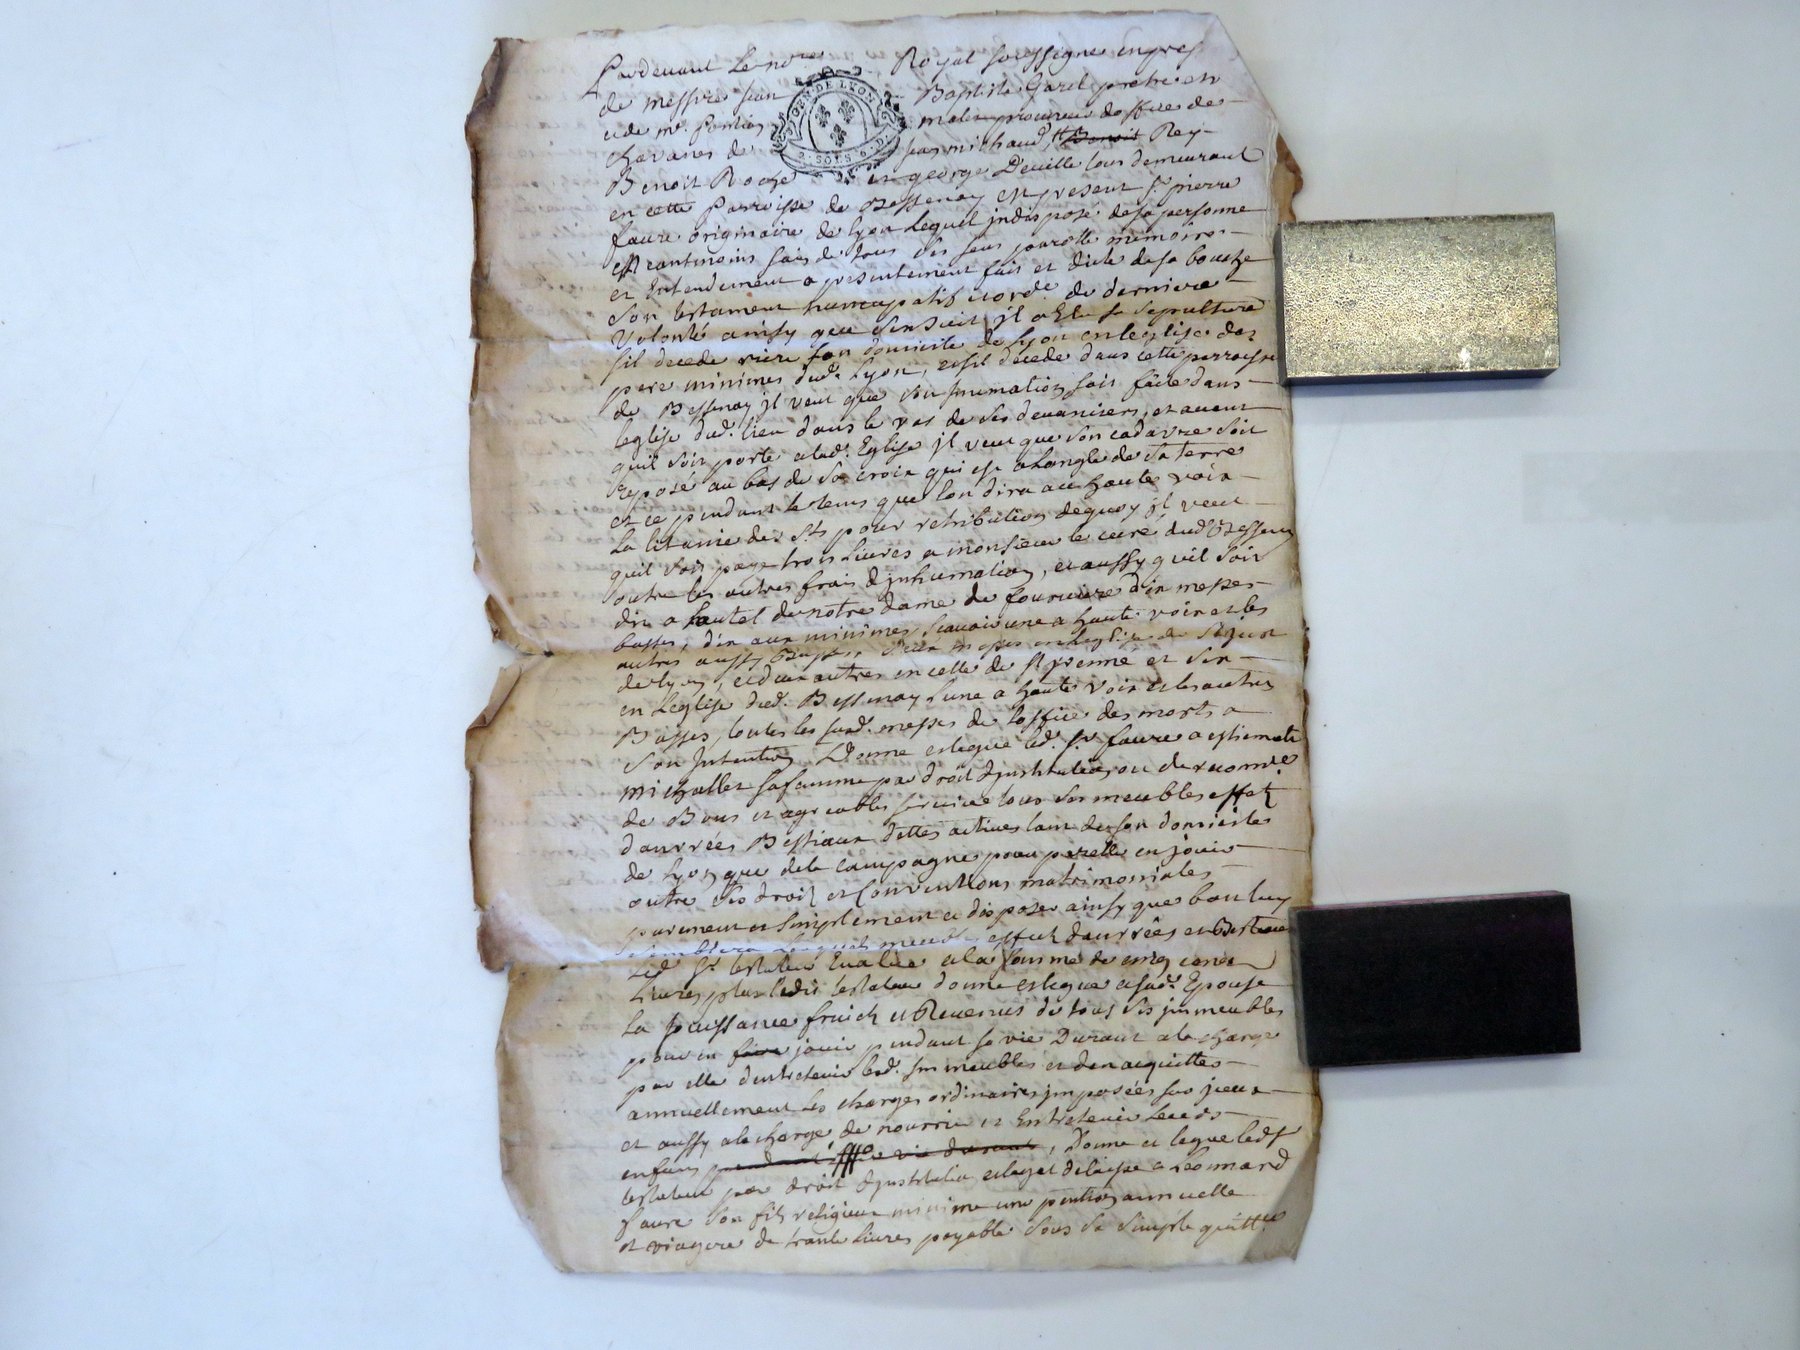 Pardevant Le no.re Royal soussigné en pres
de messire Jean Baptiste Garel pretre et
GEN. DE LYON
2. SOLS 6. D.
chavanes de Jean michaud, Benoit Rey
Benoit Roche et george Deville tous demeurant
en cette Parroisse de Bessenay est present Sr pierre
faure originaire de lyon Lequel indisposé de sa personne
et neantmoins sain de tous ses sens parolle memoire
et Entendement a presentement fait et dicté de sa bouche
Son testament nuncupatif et ord.e de derniere
Volonté ainsy que sensuit il a Elu sa sepulture
sil decede riere son domicile de lyon en leglise des
pere minimes dud. Lyon, et sil decede dans cette parroisse
de Bessenay jl veut que son jnumation soit faite dans
leglise dud. lieu dans le vas de ses devanciers, et avant
quil soit porté a lad. Eglise jl veut que son cadavre soit
reposé au bas de sa croix qui est a langle de sa terre
et ce pendant le tems que lon dira a haute voix
La litanie des Sts pour retribution dequoy jl veut
quil soit payé trois livres a monsieur le curé dud Bessenay
outre les autres frais dinhumation, et aussy quil soit
dit a lautel de notre dame de fourviere dix messes
basses, dix aux minimes, scavoir une a haute voix et les
autres aussy basses, deux messes en leglise de St just
de lyon, et deux autres en celle de St yrenné et six
en Leglise dud. Bessenay lune a haute voix et les autres
Basses, toutes les susd. messes de loffice des morts a
Son Jntention, Donne et legue led. Sr faure a estiennette
michallet sa femme par droit djnstitution ou de recomp.ce
de Bons et agreables services tous ses meubles effets
danrrées Bestiaux dettes actives tant de son domicile
de Lyon que de la campagne pour par elle en jouir
outre ses droits et Conventions matrimoniales
purement et simplement et disposer ainsy que bon luy
semblera lesquels meubles effets danrrées et Bestiaux
Led Sr testateur Evalue a la somme de cinq cent
Livres plus ledit testateur donne et legue a sad. Epouse
La jouissance fruits et Revenus de tous ses jmmeubles
pour en faire jouir pendant sa vie Durant a la charge
par elle dentretenir lesd. jmmeubles et den acquitter
annuellement les charges ordinaires jmposées sur jceux
et aussy a la charge de nourrir et Entretenir Leurs
enfans pendant sa vie durant, Donne et legue ledt
testateur par droit djnstitution et legat delaisse a Leonnard
faure Son fils religieux minime une pention annuelle
et viagere de trante livres payable sous sa simple quitt.ce